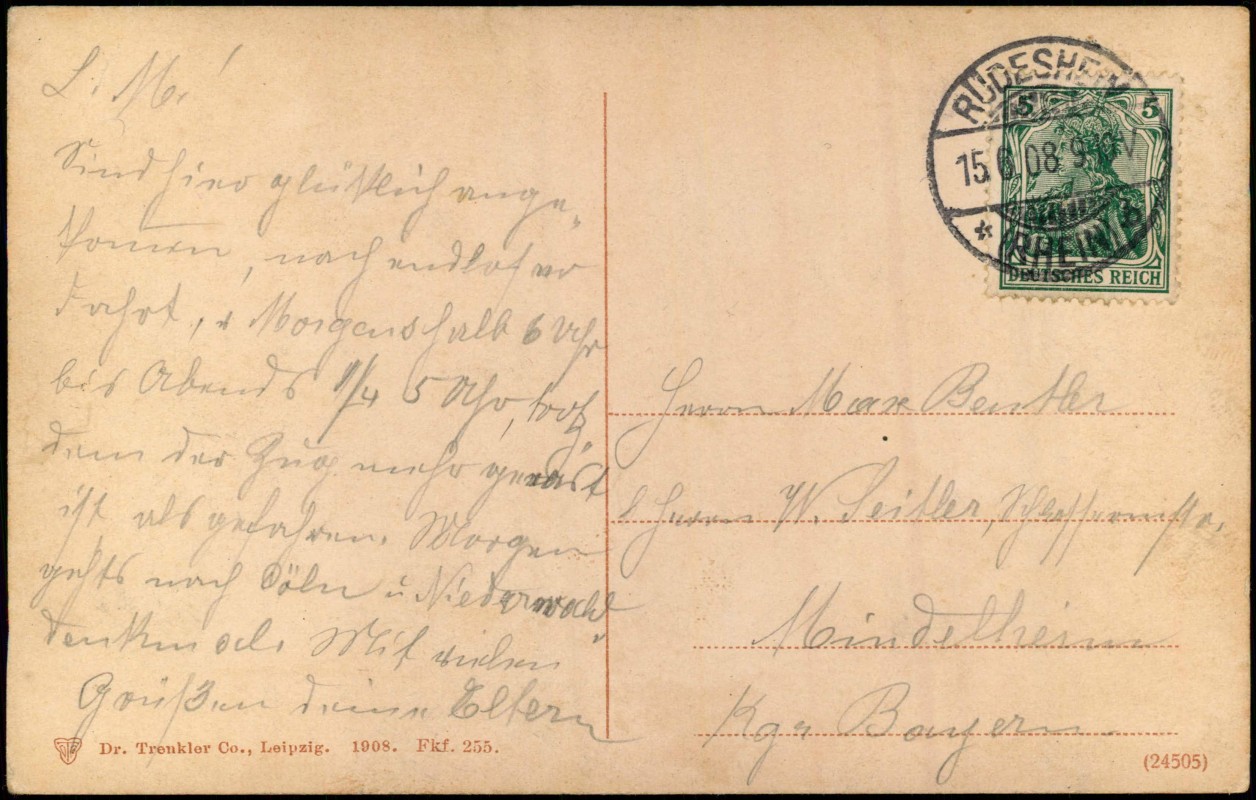 L. M.!
Sind hier glücklich ange-
kommen, nach endloser
Fahrt, v Morgens halb 6 Uhr
bis Abends 1/4 5 Uhr, trotz-
dem der Zug mehr gerast
ist, als gefahren. Morgen
gehts nach Cöln u Niederwald-
denkmal. Mit vielen
Grüßen deine Eltern
Dr. Trenkler Co., Leipzig. 1908. Fkf. 255.
RÜDESHEIM
15.6.08 9 V
* (RHEIN) b
5 5
DEUTSCHES REICH
Herrn Max Beutler
Herrn W. Seitler,
Mindelheim
Kgr Bayern
(24505)